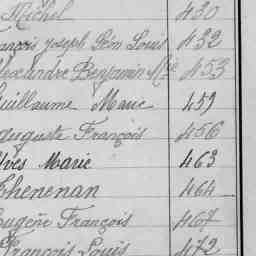 Michel 430
ançois Joseph Léon Louis 432
lexandre Benjamin Mie 453
uillaume Marie 459
uguste François 456
Yves Marie 463
Thenenan 464
Eugène François 467
François Louis 472